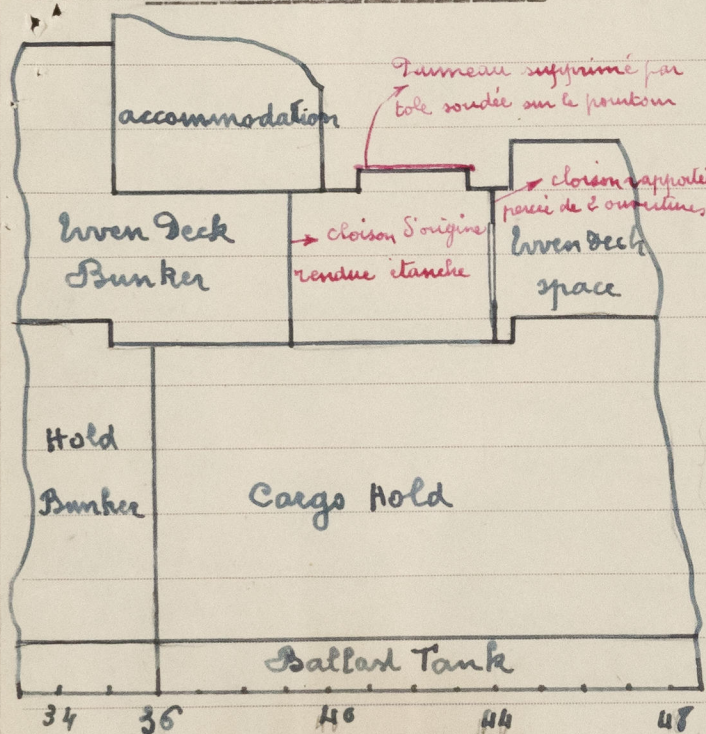 Panneau supprimé par
tole soudée sur le pourtour
accommodation
cloison rapportée
percée de 2 ouvertures
Tween Deck
Bunker
cloison d'origine
rendue étanche
Tween Deck
space
Hold
Bunker
Cargo Hold
Ballast Tank
34 36 40 44 48